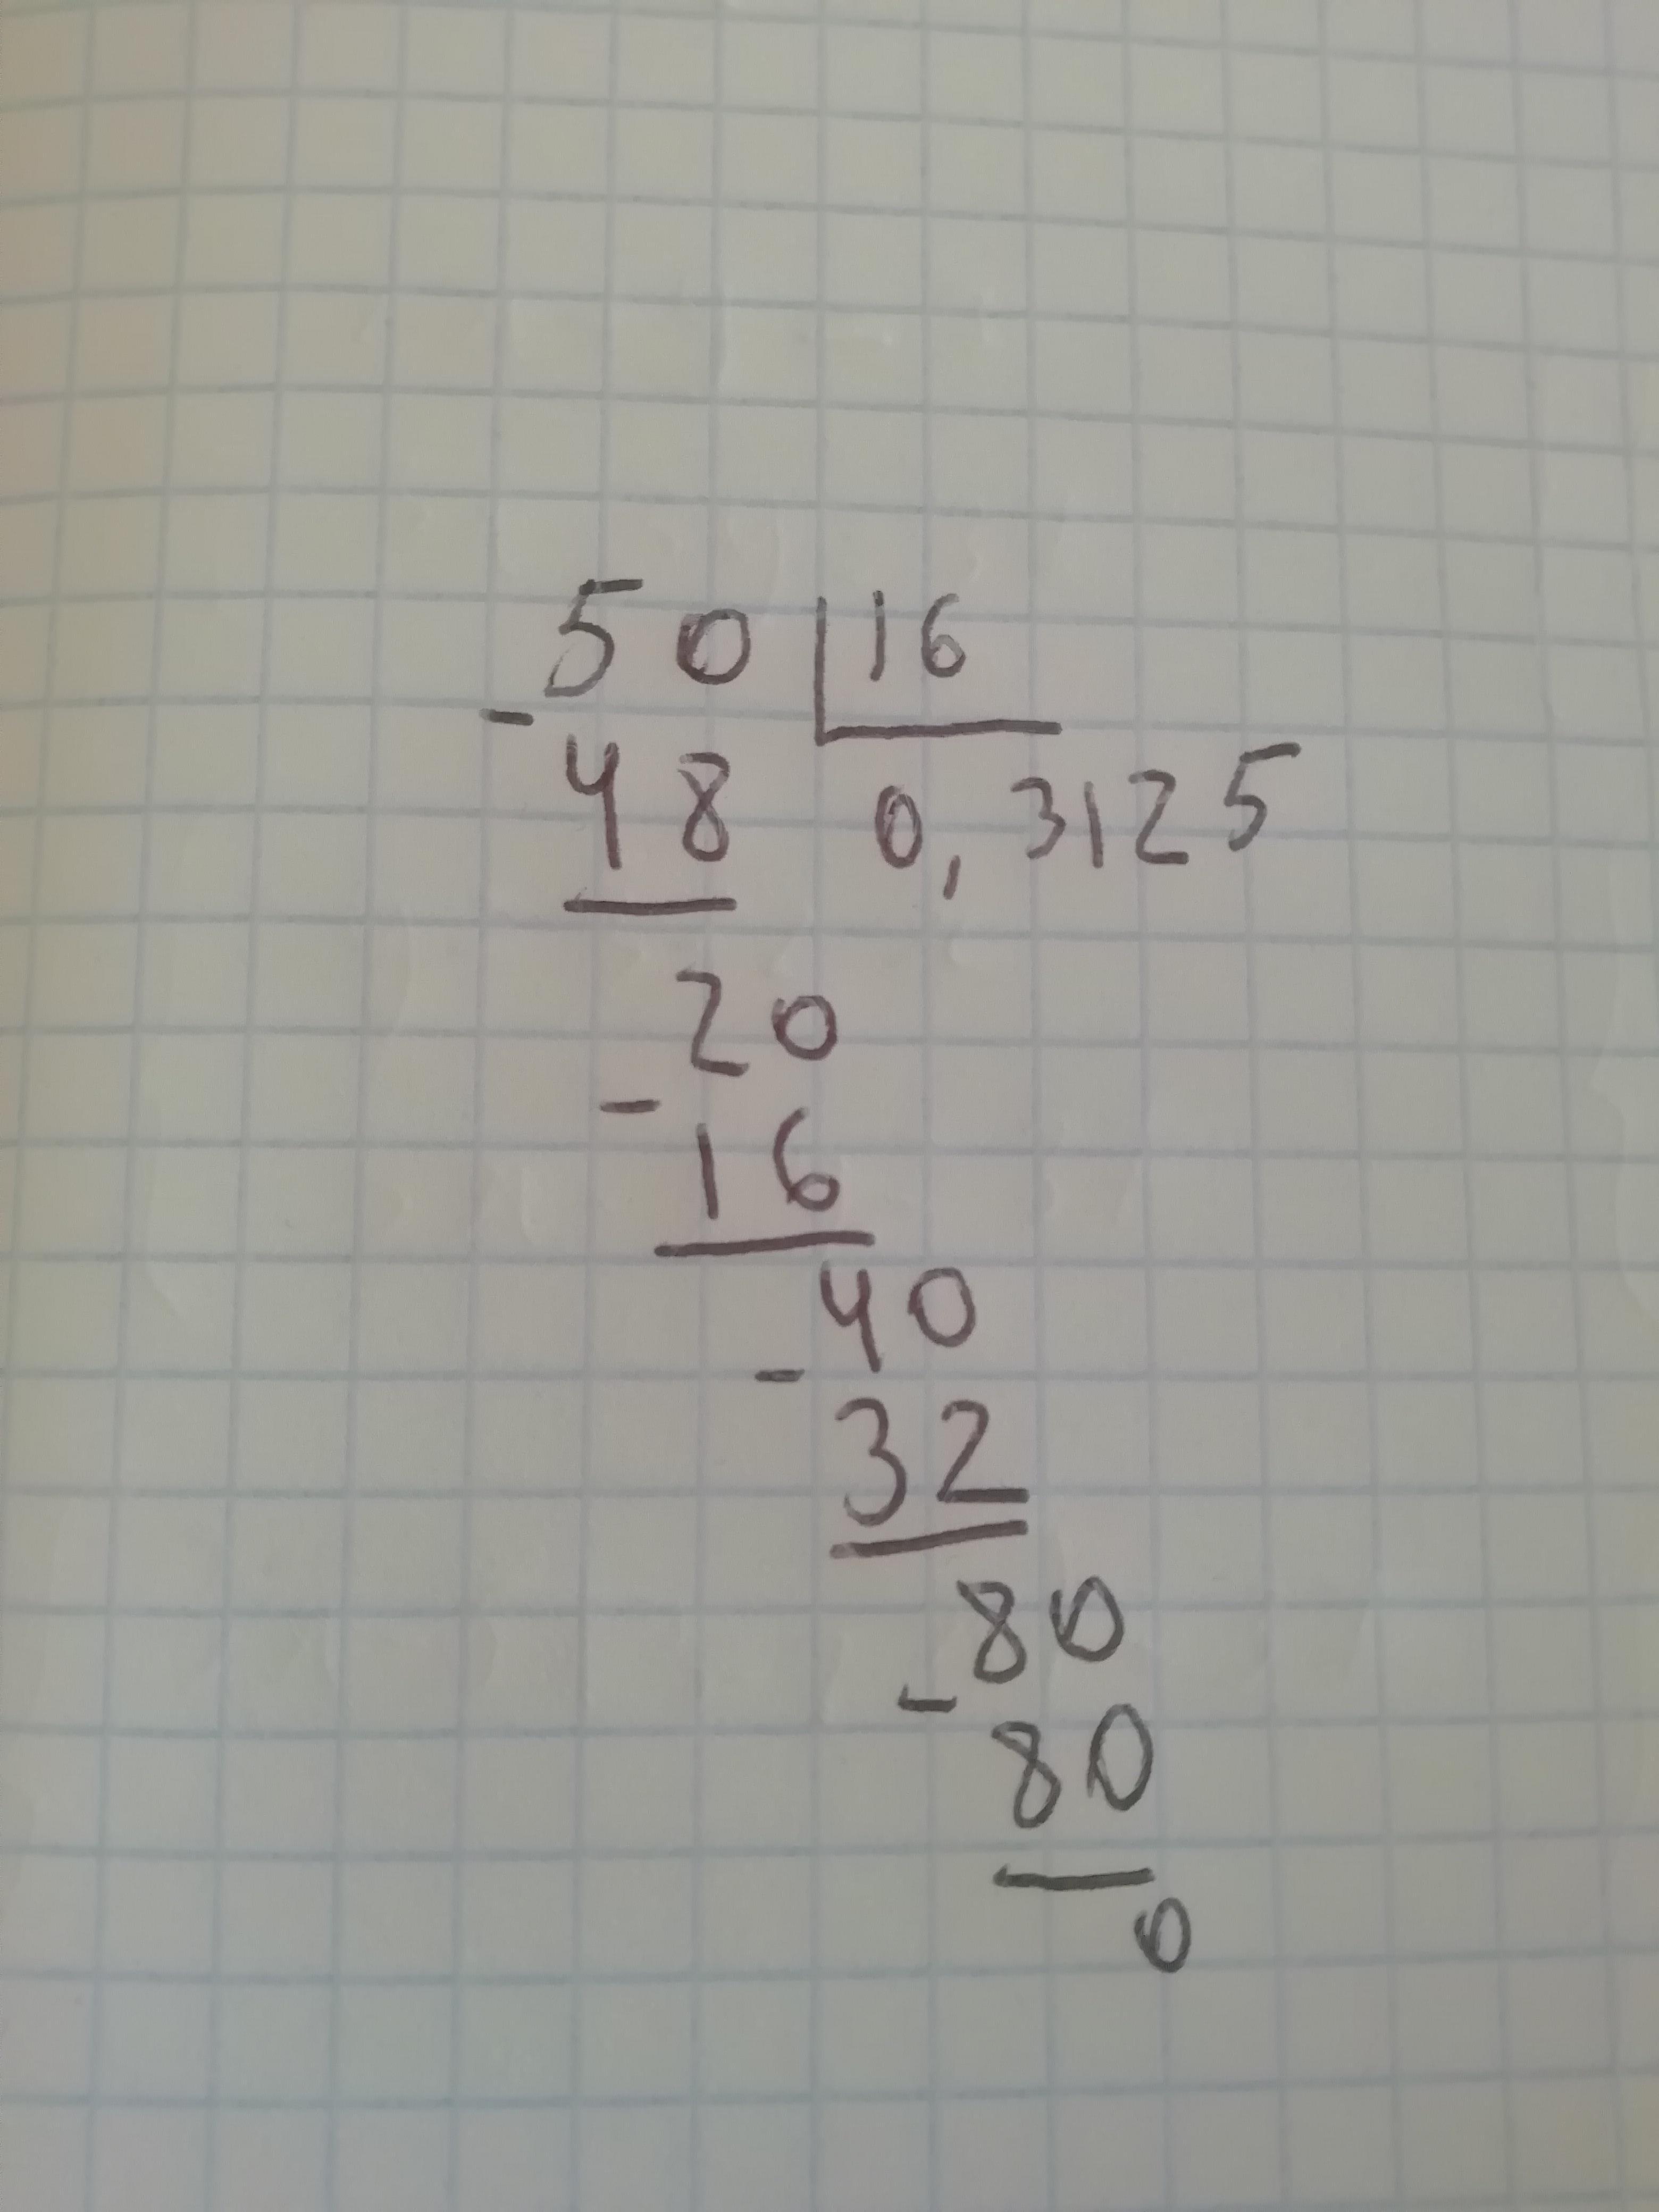 50 16
- 48 0,3125
20
- 16
40
- 32
80
- 80
0